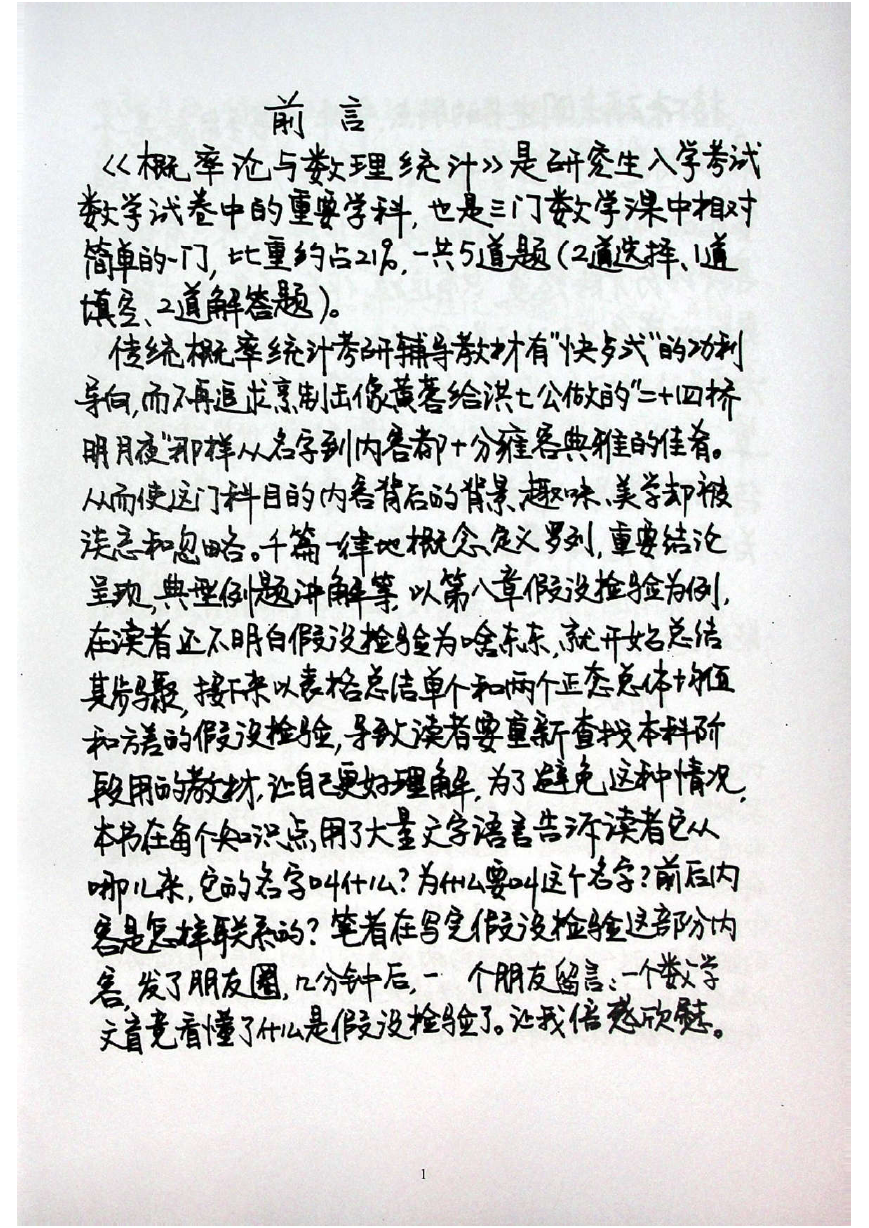 前言
《概率论与数理统计》是研究生入学考试
数学试卷中的重要学科,也是三门数学课中相对
简单的一门,比重约占21%,一共5道题(2道选择、1道
填空、2道解答题)。
传统概率统计考研辅导教材有"快歺式"的功利
导向,而不再追求烹制出像黄蓉给洪七公做的"二十四桥
明月夜"那样从名字到内容都十分雍容典雅的佳肴。
从而使这门科目的内容背后的背景、趣味、美学却被
淡忘和忽略。千篇一律地概念、定义罗列,重要结论
呈现,典型例题讲解等,以第八章假设检验为例,
在读者还不明白假设检验为啥东东,就开始总结
其步骤,接下来以表格总结单个和两个正态总体均值
和方差的假设检验,导致读者要重新查找本科阶
段用的教材,让自己更好理解,为了避免这种情况,
本书在每个知识点,用了大量文字语言告诉读者它从
哪儿来,它的名字叫什么?为什么要叫这个名字?前后内
容是怎样联系的?笔者在写完假设检验这部分内
容,发了朋友圈,几分钟后,一 个朋友留言:一个数学
文盲竟看懂了什么是假设检验了。让我倍感欣慰。
1